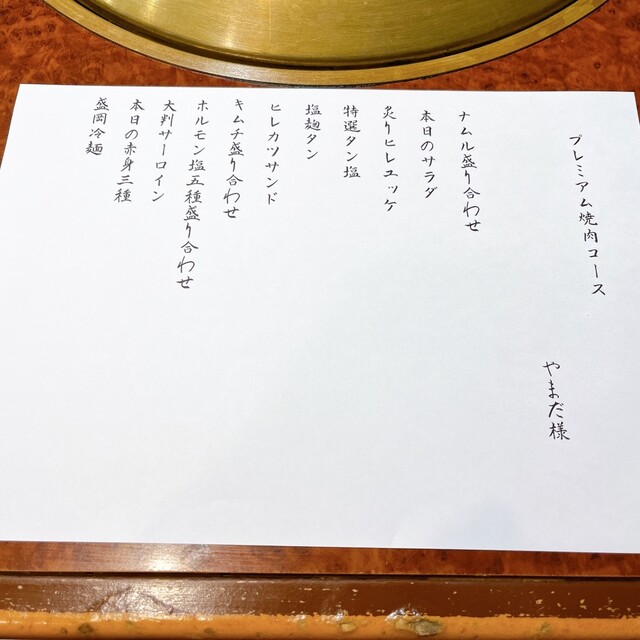 プレミアム焼肉コース
やまだ様
ナムル盛り合わせ
本日のサラダ
炙りヒレユッケ
特選タン塩
塩麹タン
ヒレカツサンド
キムチ盛り合わせ
ホルモン塩五種盛り合わせ
大判サーロイン
本日の赤身三種
盛岡冷麺